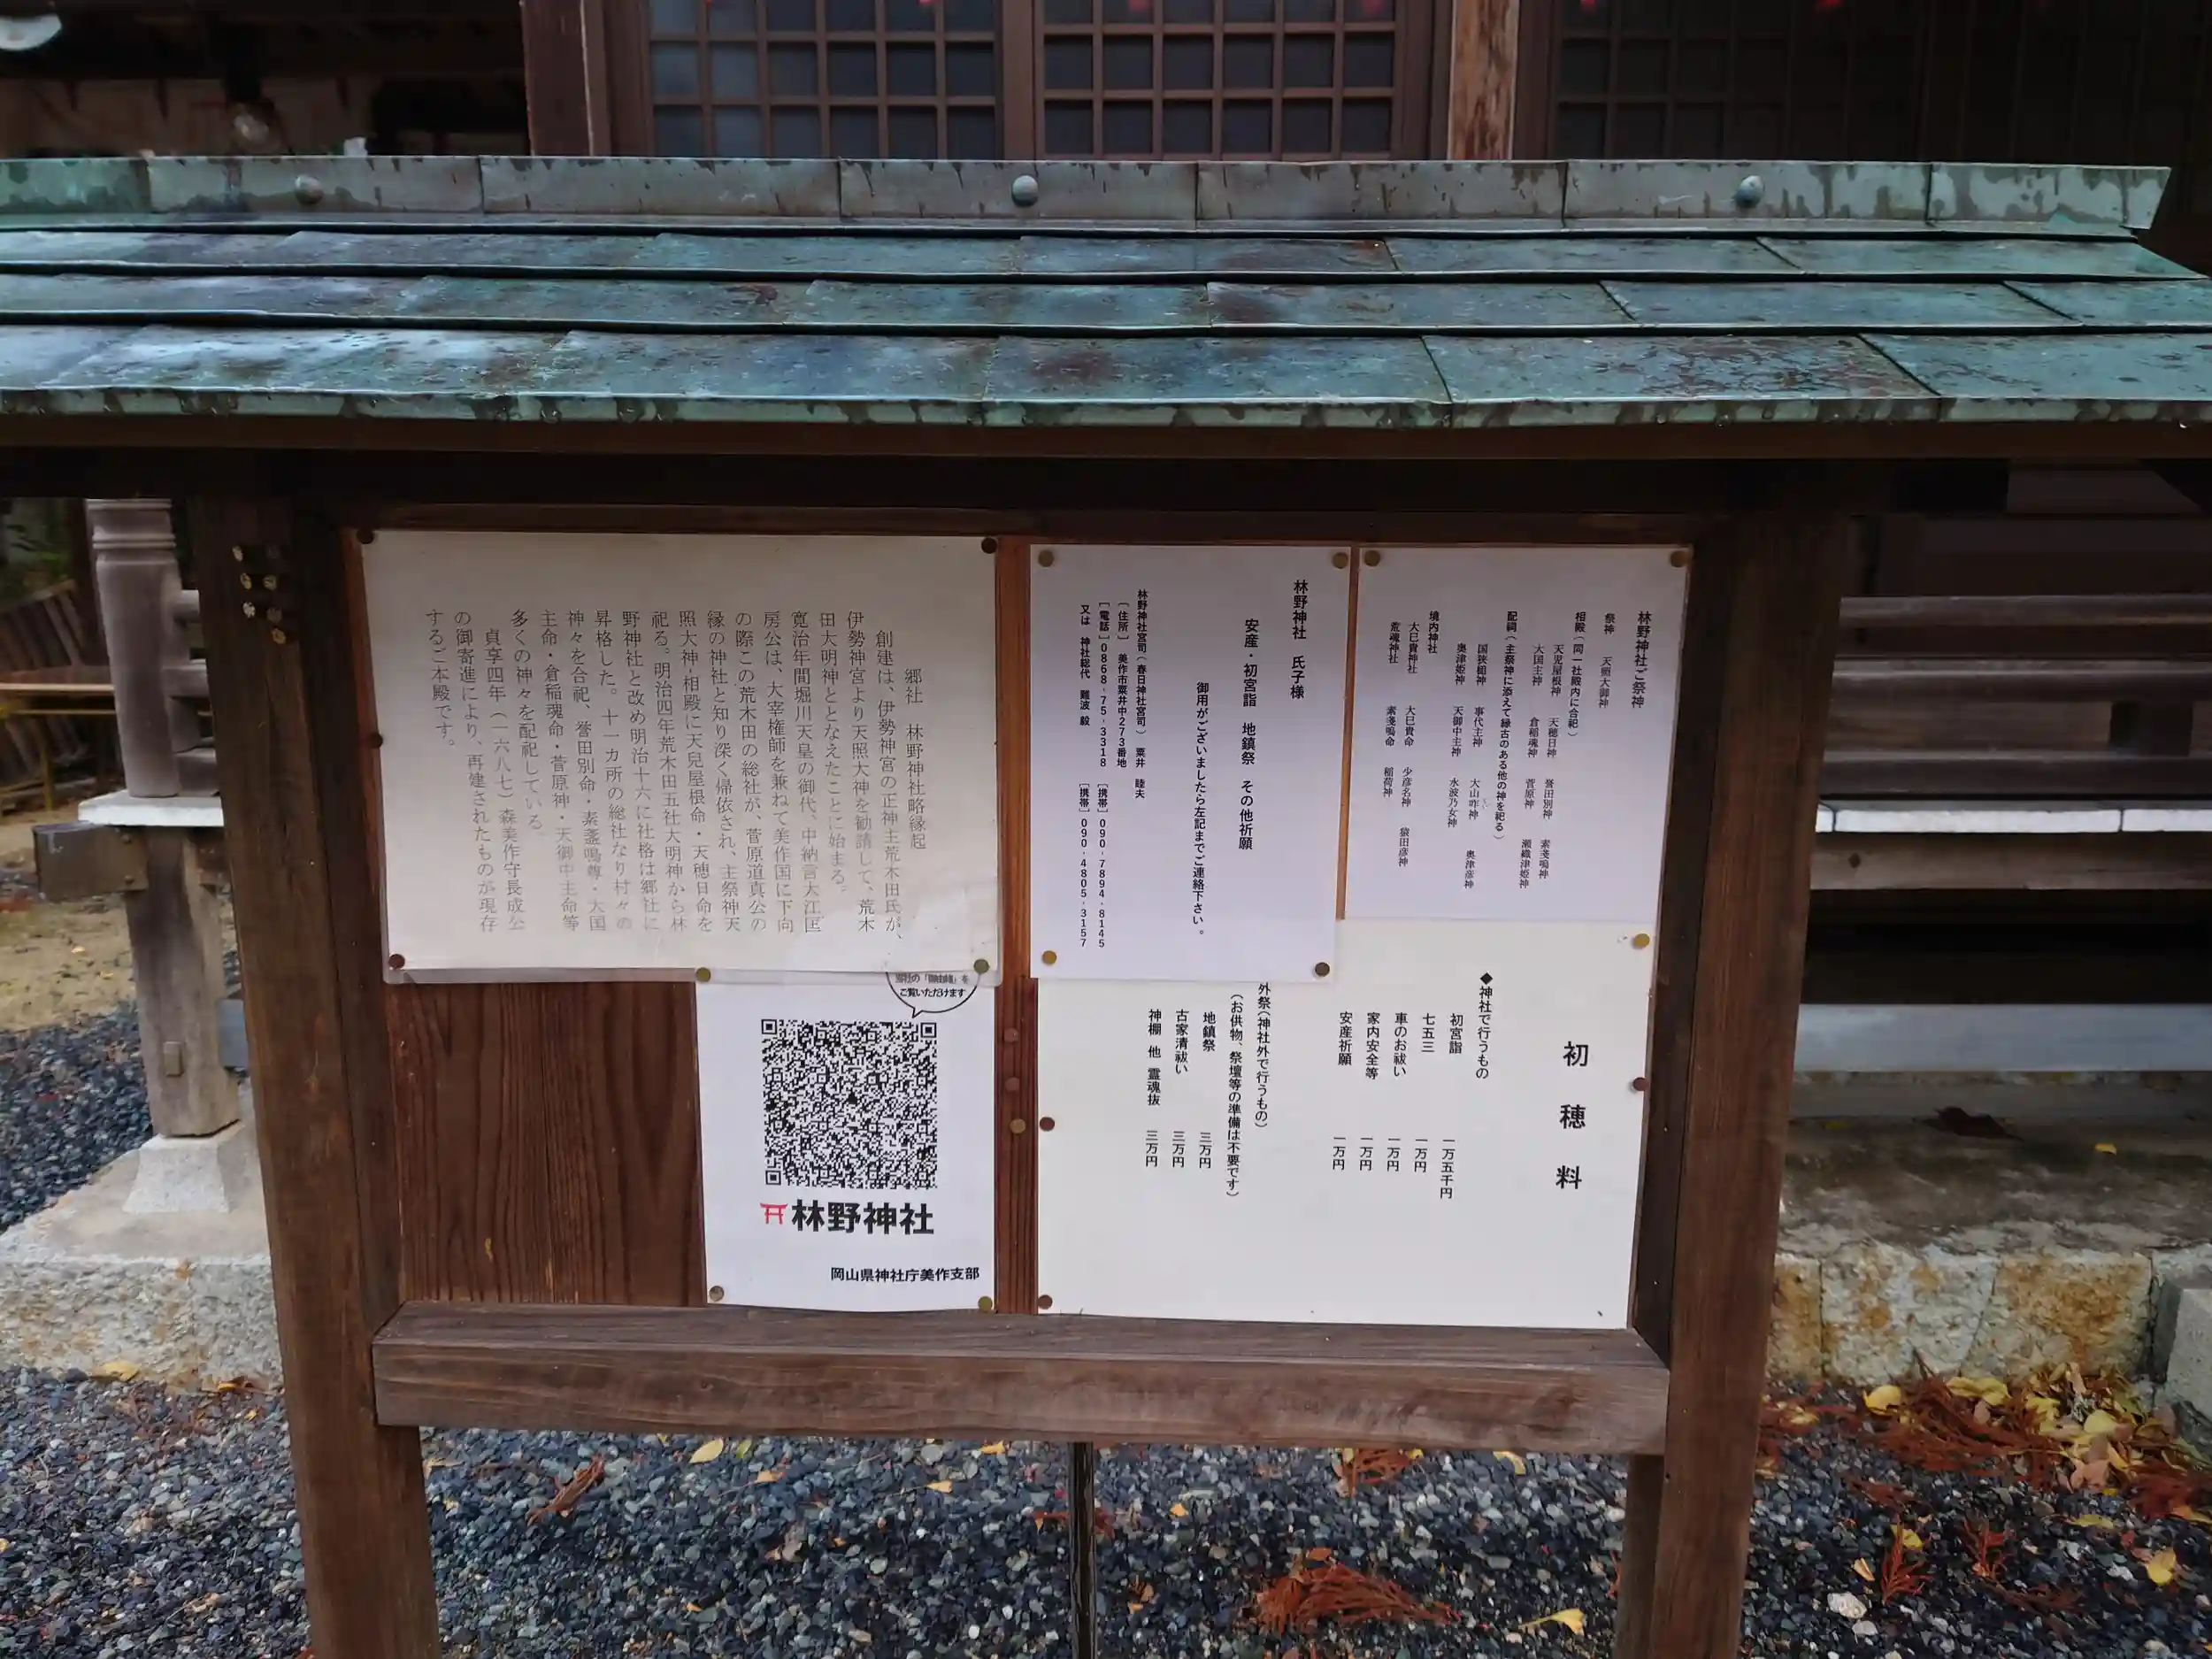 郷社　林野神社略縁起
創建は、伊勢神宮の正神主荒木田氏が、
伊勢神宮より天照大神を勧請して、荒木
田大明神ととなえたことに始まる。
寛治年間堀川天皇の御代、中納言大江匡
房公は、大宰権師を兼ねて美作国に下向
の際この荒木田の総社が、菅原道真公の
縁の神社と知り深く帰依され、主祭神天
照大神・相殿に天兒屋根命・天穂日命を
祀る。明治四年荒木田五社大明神から林
野神社と改め明治十六に社格は郷社に
昇格した。十一カ所の総社なり村々の
神々を合祀、誉田別命・素盞鳴尊・大国
主命・倉稲魂命・菅原神・天御中主命等
多くの神々を配祀している。
貞享四年（一六八七）森美作守長成公
の御寄進により、再建されたものが現存
するご本殿です。
林野神社　氏子様
安産・初宮詣　地鎮祭　その他祈願
御用がございましたら左記までご連絡下さい。
林野神社宮司（春日神社宮司）　粟井　睦夫
［住所］　美作市粟井中２７３番地
［電話］０８６８-７５-３３１８　［携帯］０９０-７８９４-８１４５
又は　神社総代　難波　毅　［携帯］０９０-４８０５-３１５７
林野神社ご祭神
祭神　天照大御神
相殿（同一社殿内に合祀）
天児屋根神　天穂日神　誉田別神　素戔嗚神
大国主神　倉稲魂神　菅原神　瀬織津姫神
配祠（主祭神に添えて縁古のある他の神を祀る）
国狭槌神　事代主神　大山咋神　奥津彦神
奥津姫神　天御中主神　水波乃女神
境内神社
大巳貴神社　大巳貴命　少彦名神　猿田彦神
荒魂神社　素戔嗚命　稲荷神
ご覧いただけます
林野神社
岡山県神社庁美作支部
初穂料
◆神社で行うもの
初宮詣　一万五千円
七五三　一万円
車のお祓い　一万円
家内安全等　一万円
安産祈願　一万円
外祭（神社外で行うもの）
（お供物、祭壇等の準備は不要です）
地鎮祭　三万円
古家清祓い　三万円
神棚　他　霊魂抜　三万円